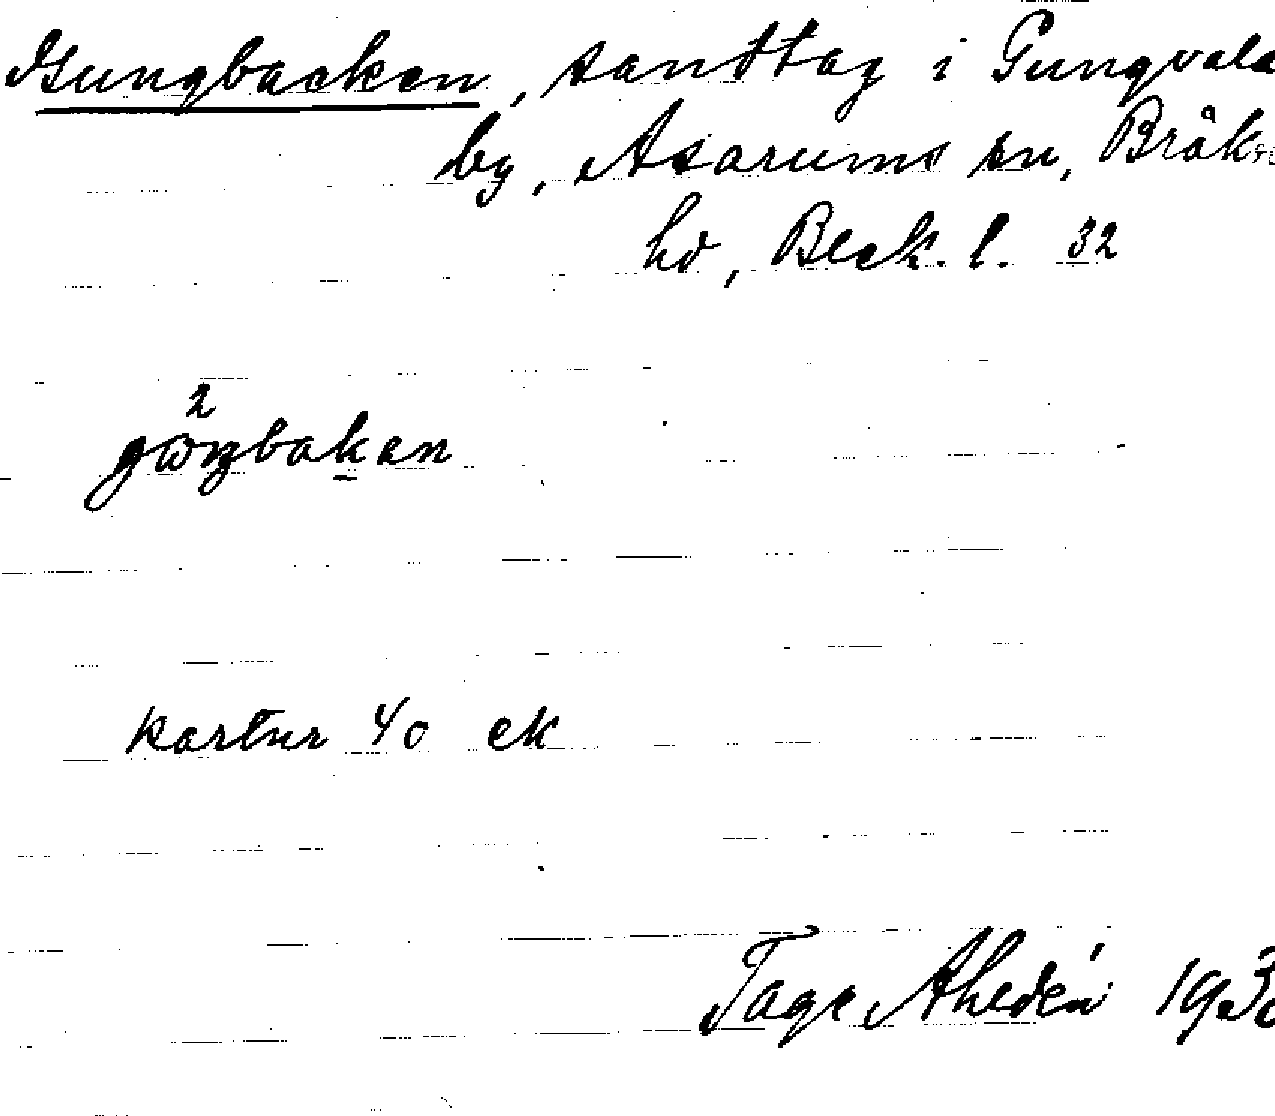 Gungbacken, sandtag i Gungvala
by, Asarums sn, Bräkne
hd, Bleck. l. 32
2
gωŋbakan
kartur 40 ek
Tage Ahldén 193